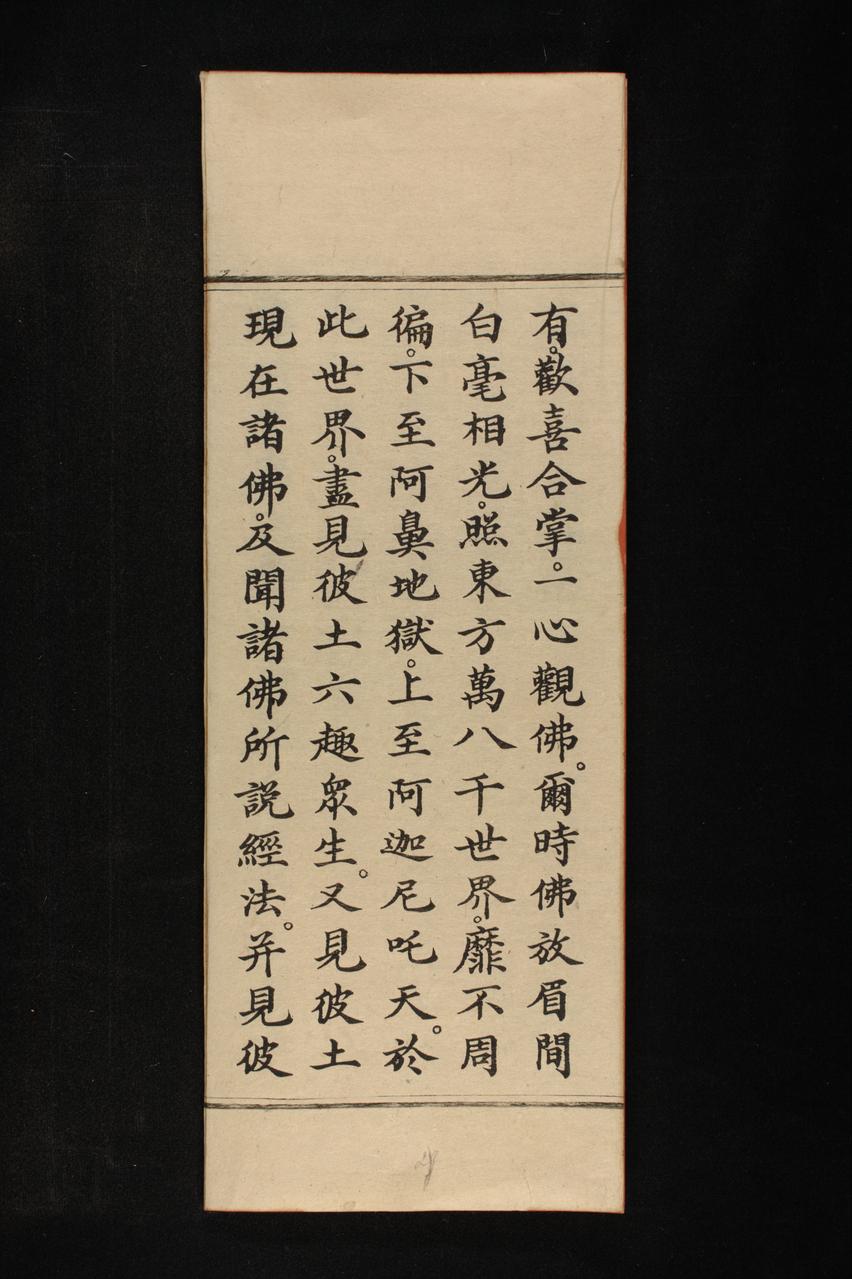 有。歡喜合掌。一心觀佛。爾時佛放眉間
白毫相光。照東方萬八千世界。靡不周
徧。下至阿鼻地獄。上至阿迦尼吒天。於
此世界。盡見彼土六趣眾生。又見彼土
現在諸佛。及聞諸佛所説經法。并見彼